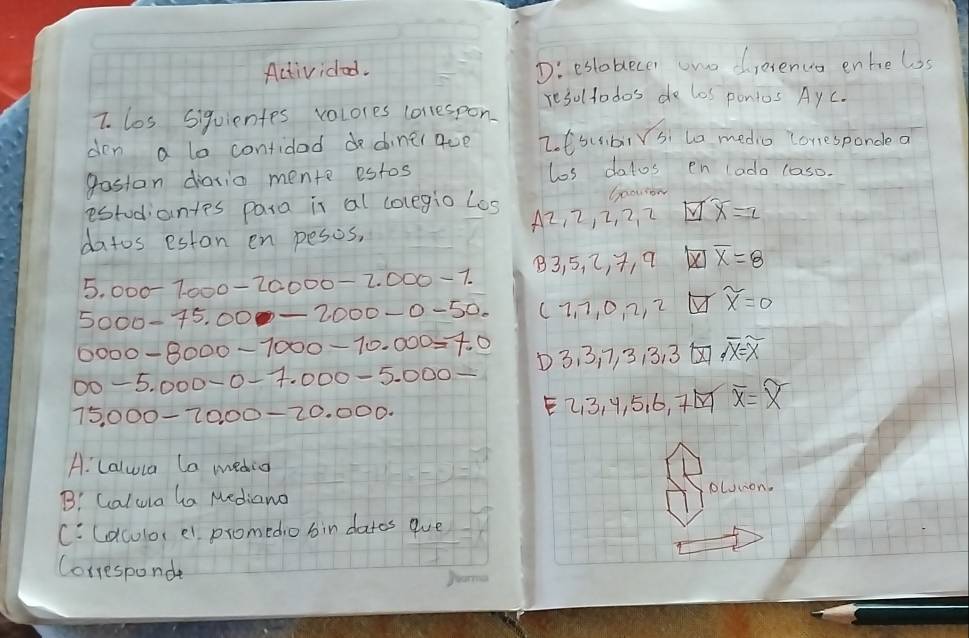 Actividad.
1. los siguientes valores correspon-
den a la cantidad de diner que
gastan diaria mente estos
estudiantes para ir al colegio Los
datos estan en pesos,
5.000-1.000-20.000-2.000-1.
5000-75.000-2000-0-50.
0000-8000-1000-10.000=7.0
00-5.000-0-7.000-5.000-
15,000-2000-20.000.
A: Calcula la media
B: Calcula la Mediana
C: Calcular el promedio sin datos que
Corresponde
D: establecer una diferencia entre los
resultados de los pontos A y C.
2. Escribir V si la media corresponde a
los datos en cada caso.
A 2, 2, 2, 2, 2 x̃ = 2
B 3, 5, 2, 7, 9 x̄ = 8
C 1, 1, 0, 2, 2 x̃ = 0
D 3, 3, 7, 3, 3, 3 x̄ = x̃
E 2, 3, 4, 5, 6, 7 x̄ = x̃
Solucion.
norma